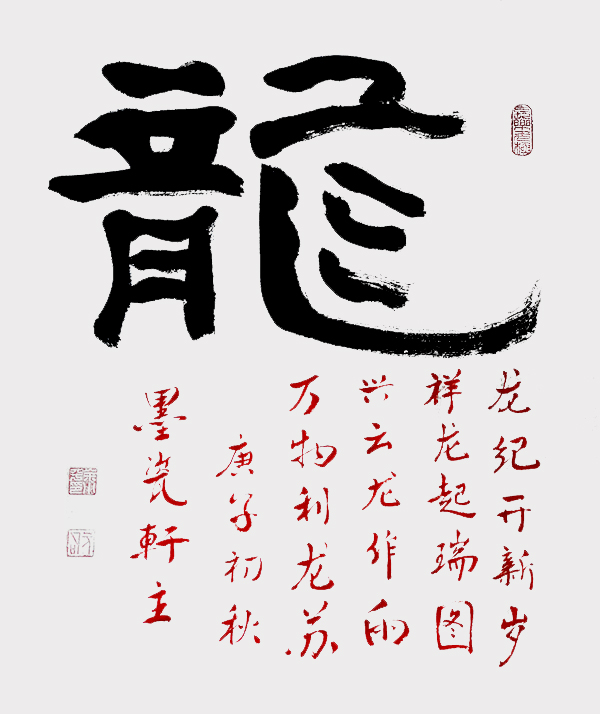 龍
龙纪开新岁
祥龙起瑞图
兴云龙作雨
万物利龙苏
庚子初秋
墨瓷軒主